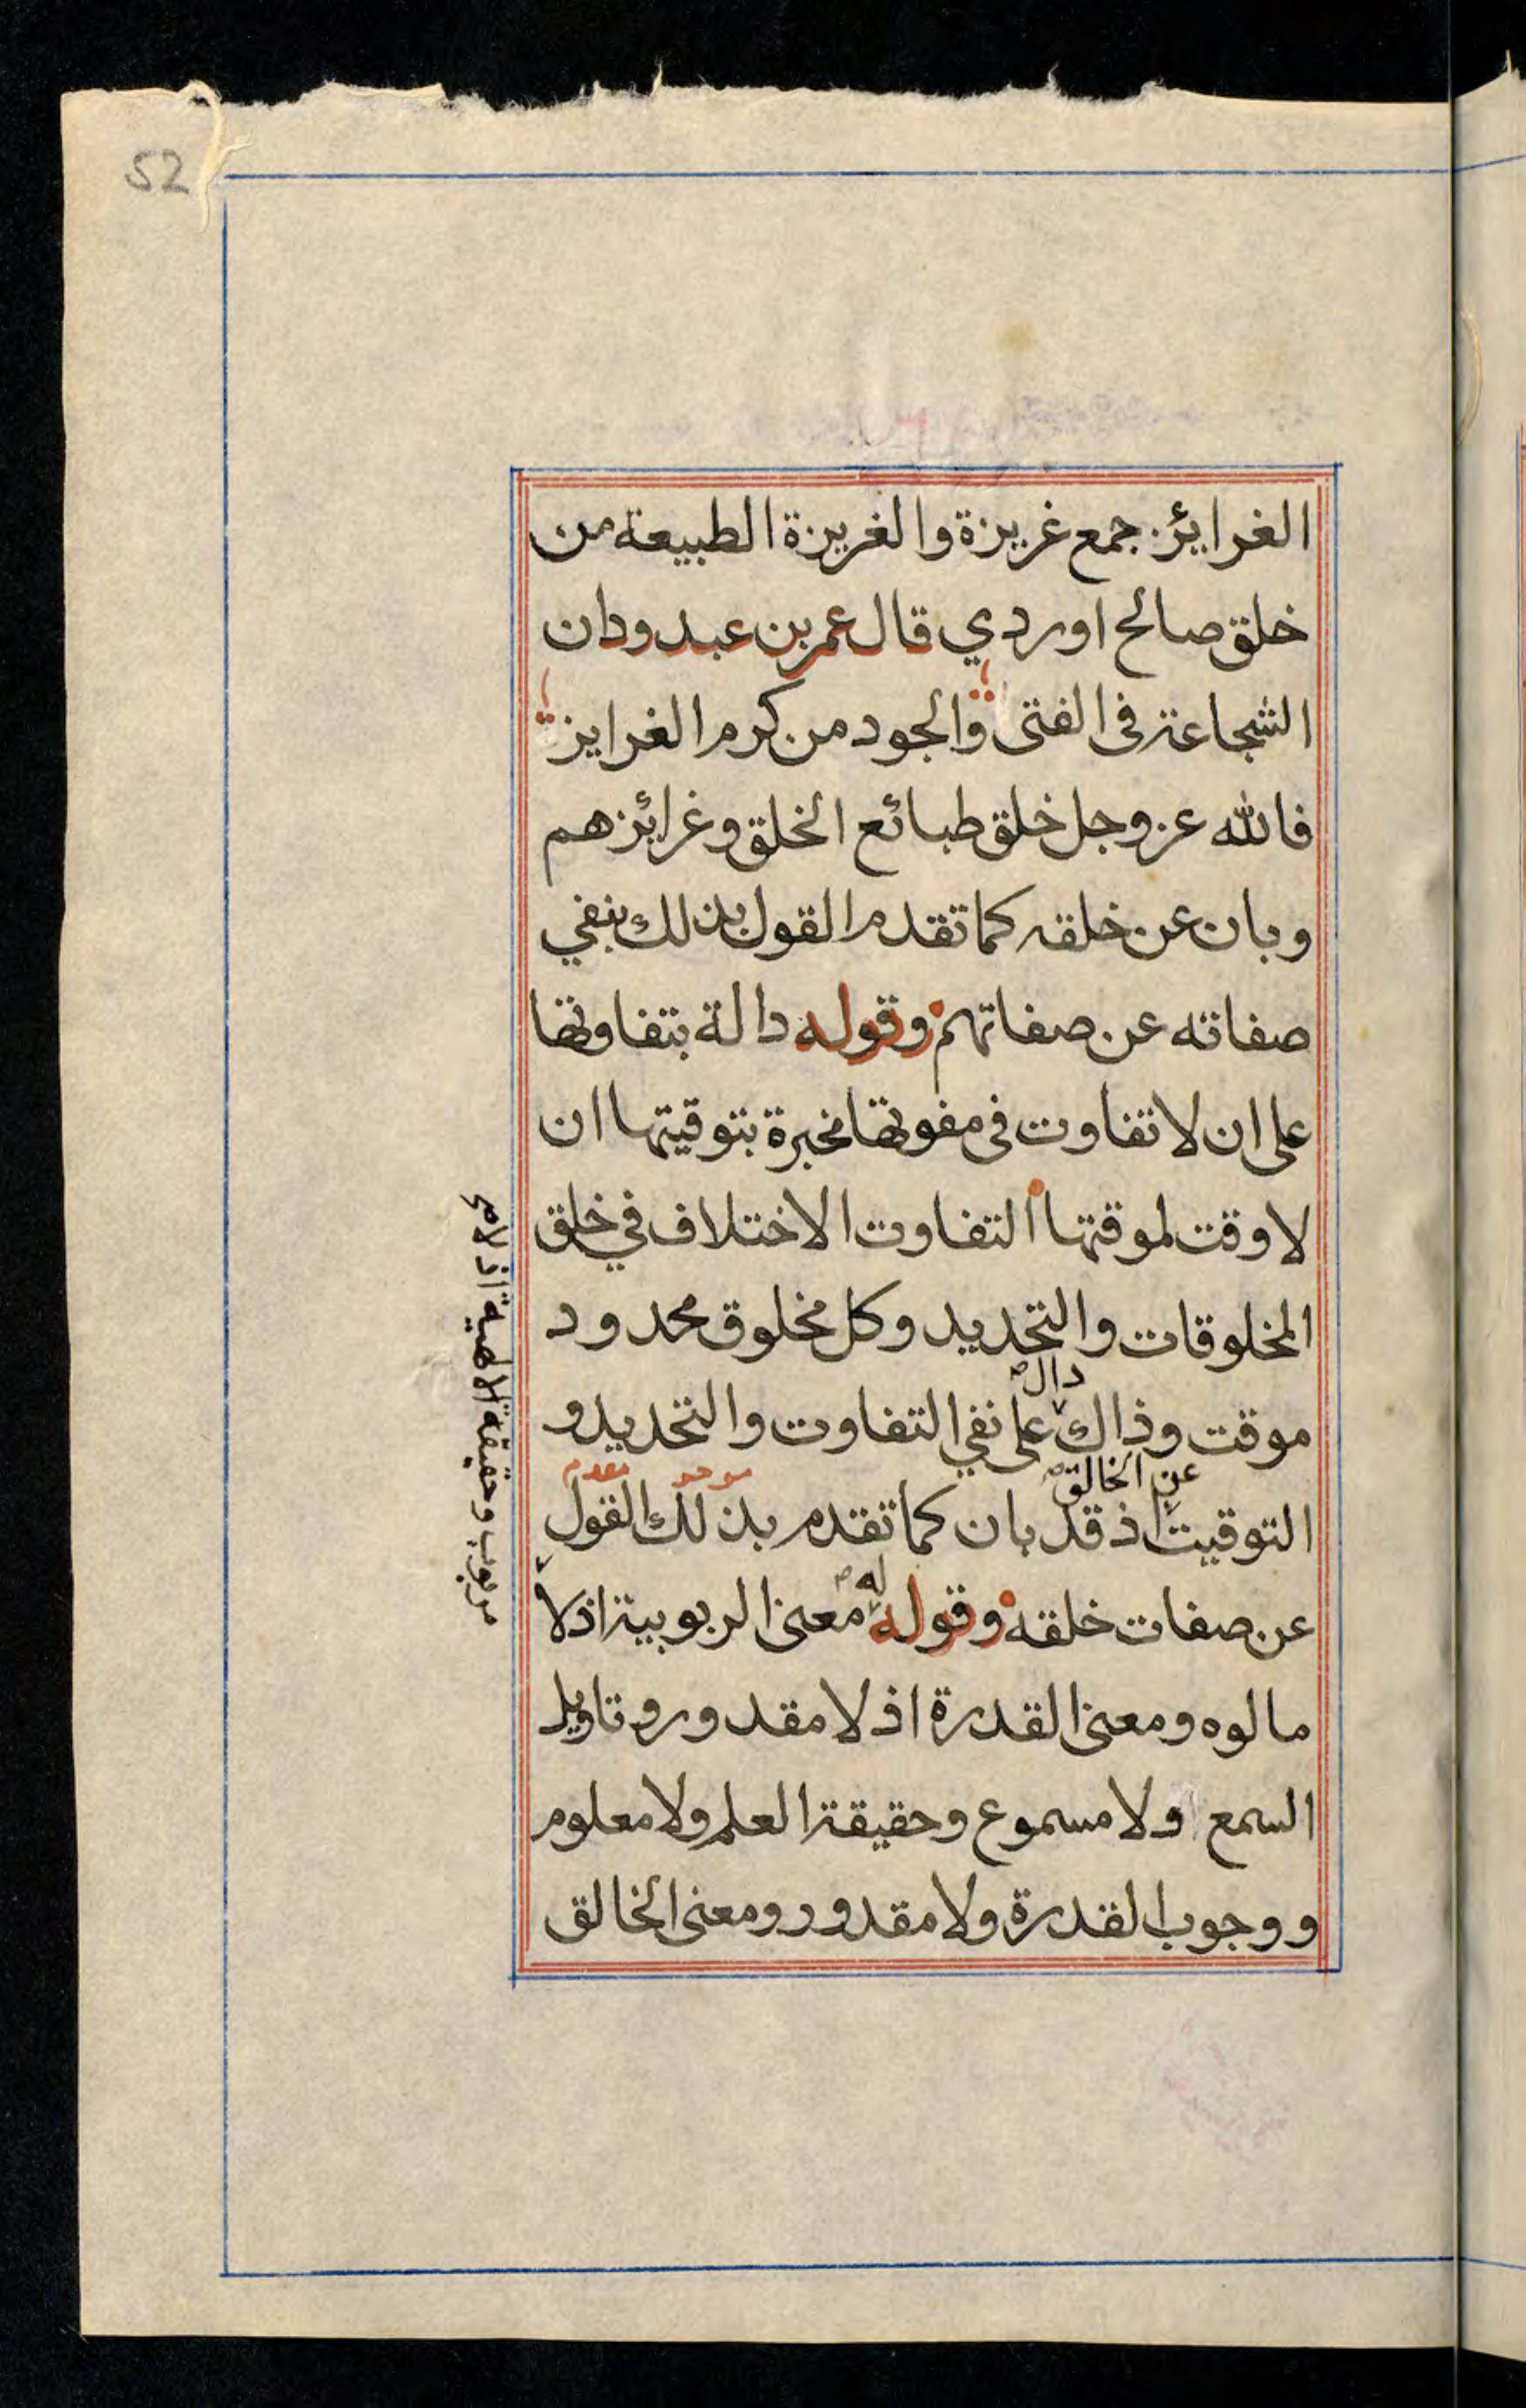 52
الغرايز جمع غريزة والغريزة الطبيعة من
خلق صالح اوردي قال عمر بن عبد ودان
الشجاعة فى الفتى والجود من كرم الغرايز
فالله عز وجل خلق طبائع الخلق وغرائزهم
وبان عن خلقه كما تقدم القول بذلك بنفي
صفاته عن صفاتهم وقوله دالة بتفاوتها
على ان لا تفاوت فى مفوتها مخبرة بتوقيتها ان
لا وقت لموقتها التفاوت الاختلاف في خلق
المخلوقات والتحديد وكل مخلوق محدود
دال
موقت وذاك على نفي التفاوت والتحديد و
عن الخالق
موخر مقدم
التوقيت اذ قد بان كما تقدم بذلك القول
له
عن صفات خلقه وقوله معنى الربوبية اذ لا
مالوه ومعنى القدرة اذ لا مقدور وتاويل
السمع ولا مسموع وحقيقة العلم ولا معلوم
ووجوب القدرة ولا مقدور ومعنى الخالق
مربوب وحقيقة الالهية اذ لا